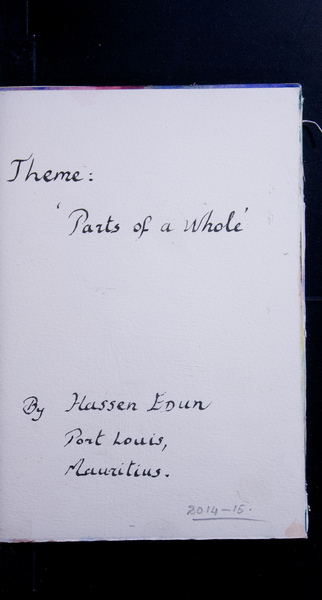 Theme:
'Parts of a Whole'
By Hassen Edun
Port Louis,
Mauritius.
2014-15.